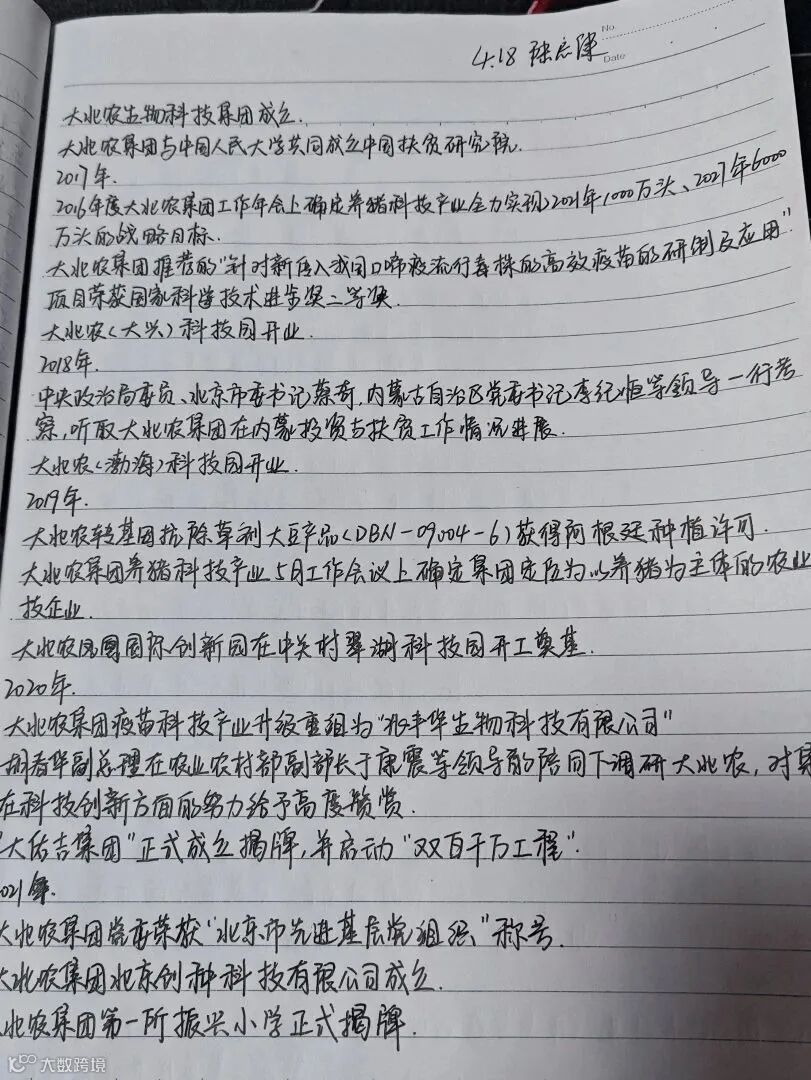 No.
4.18 陈志陈
Date
大北农生物科技集团成立.
大北农集团与中国人民大学共同成立中国扶贫研究院.
2017年.
2016年度大北农集团工作年会上确定养猪科技产业全力实现2021年1000万头、2027年6000
万头的战略目标.
大北农集团推荐的"针对新传入我国口啼疫流行毒株的高效疫苗的研制及应用"
项目荣获国家科学技术进步奖二等奖.
大北农(大兴)科技园开业.
2018年.
中央政治局委员、北京市委书记蔡奇,内蒙古自治区党委书记李纪恒等领导一行考
察,听取大北农集团在内蒙投资与扶贫工作情况进展.
大北农(渤海)科技园开业.
2019年.
大北农转基因抗除草剂大豆产品(DBN-09004-6)获得阿根廷种植许可.
大北农集团养猪科技产业5月工作会议上确定集团定位为以养猪为主体的农业
技企业.
大北农凤凰国际创新园在中关村翠湖科技园开工奠基.
2020年.
大北农集团疫苗科技产业升级重组为"兆丰华生物科技有限公司"
胡春华副总理在农业农村部副部长于康震等领导的陪同下调研大北农,对其
在科技创新方面的努力给予高度赞赏.
"大佑吉集团"正式成立揭牌,并启动"双百千万工程".
021年.
大北农集团党委荣获"北京市先进基层党组织"称号.
大北农集团北京创种科技有限公司成立.
北农集团第一所振兴小学正式揭牌.
大数跨境